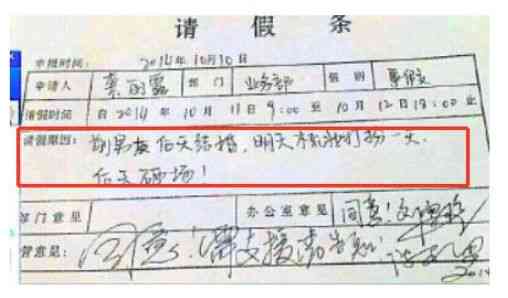 请 假 条
申报时间: 2014年10月10日
申请人 袁丽露 部门 业务部 假别 事假
请假时间 自2014年10月11日9:00至10月12日18:00止
请假原因: 前男友后天结婚,明天打扮一天.
后天砸场!
部门意见 办公室意见 同意!
意见: 同意!需支援请告知
2014